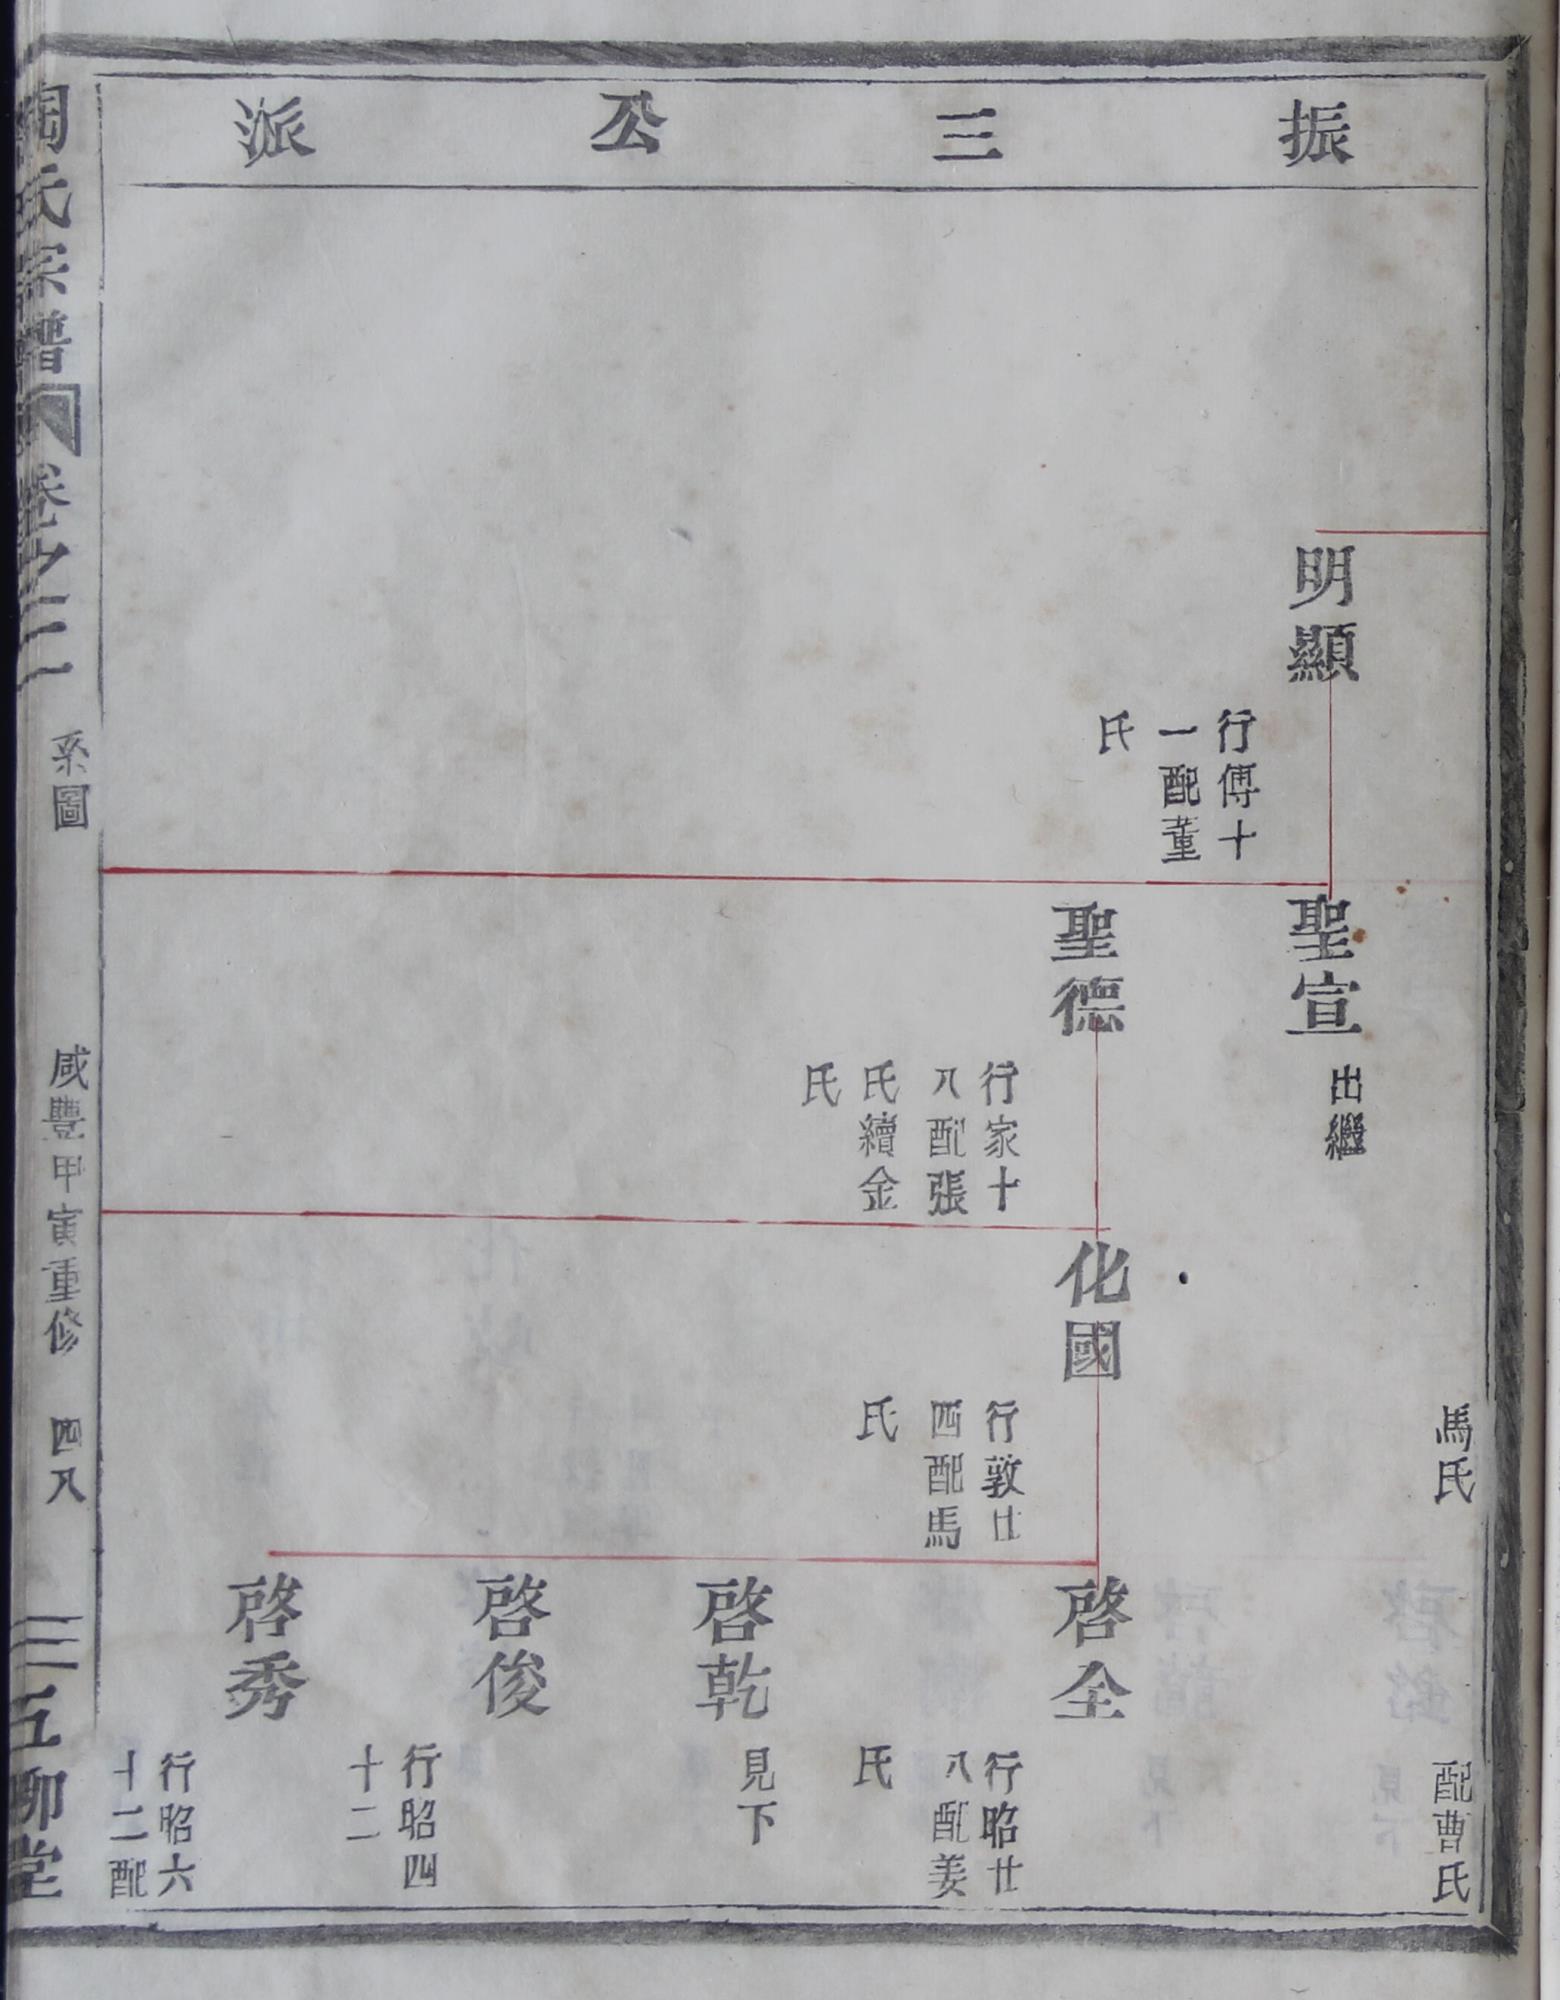 振三公派
馬氏
配曹氏
明顯
行傅十
一配董
氏
聖宣
出繼
聖德
行家十
八配張
氏續金
氏
化國
行敦廿
四配馬
氏
啓全
行昭廿
八配姜
氏
啓乾
見下
啓俊
行昭四
十二
啓秀
行昭六
十二配
陶氏宗譜 卷之三 系圖 咸豐甲寅重修 四八 五柳堂